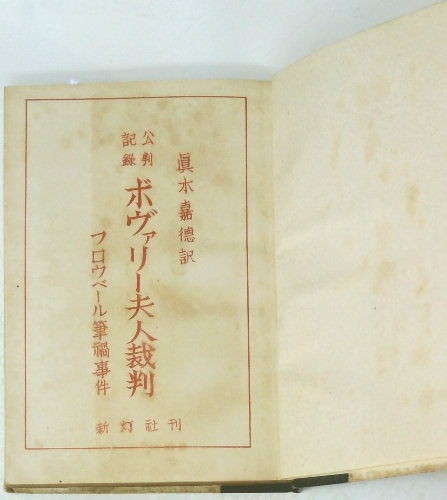 眞木嘉德訳
公判記録
ボヴァリー夫人裁判
フロウベール筆禍事件
新灯社刊